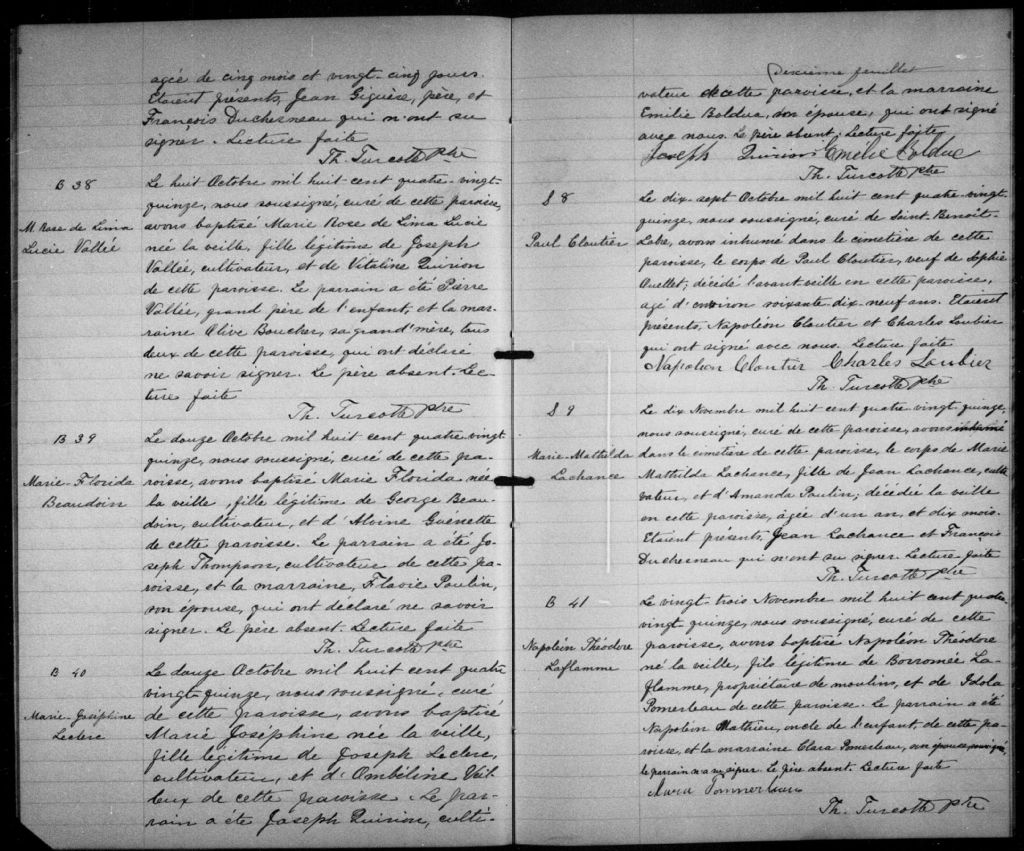 agée de cinq mois et vingt-cinq jours.
Etaient présents, Jean Giguère, père, et
François Duchesneau qui n'ont su
signer. Lecture faite
Th. Turcotte Ptre
B 38
M. Rose de Lima
Lucie Vallée
Le huit Octobre mil huit cent quatre-vingt-
quinze, nous soussigné, curé de cette paroisse,
avons baptisé Marie Rose de Lima Lucie
née la veille, fille légitime de Joseph
Vallée, cultivateur, et de Vitaline Quirion
de cette paroisse. Le parrain a été Pierre
Vallée, grand père de l'enfant, et la mar-
raine Olive Boucher, sa grand'mère, tous
deux de cette paroisse, qui ont déclaré
ne savoir signer. Le père absent. Lec-
ture faite
Th. Turcotte Ptre
B 39
Marie-Florida
Beaudoin
Le douze Octobre mil huit cent quatre vingt
quinze, nous soussigné, curé de cette pa-
roisse, avons baptisé Marie Florida née
la veille, fille légitime de George Beau-
doin, cultivateur, et d'Alvine Guénette
de cette paroisse. Le parrain a été Jo-
seph Thompson, cultivateur de cette pa-
roisse, et la marraine, Flavie Poulin,
son épouse, qui ont déclaré ne savoir
signer. Le père absent. Lecture faite
Th. Turcotte Ptre
B 40
Marie-Joséphine
Leclerc
Le douze Octobre mil huit cent quatre
vingt-quinze, nous soussigné, curé
de cette paroisse, avons baptisé
Marie Joséphine née la veille,
fille légitime de Joseph Leclerc,
cultivateur, et d'Ombéline Veil-
leux de cette paroisse. Le par-
rain a été Joseph Quirion, culti-
Dixième feuillet
vateur de cette paroisse, et la marraine
Emilie Bolduc, son épouse, qui ont signé
avec nous. Le père absent. Lecture faite
Joseph Quirion Emélie Bolduc
Th. Turcotte Ptre
S 8
Paul Cloutier
Le dix-sept Octobre mil huit cent quatre-vingt-
quinze, nous soussigné, curé de Saint-Benoit-
Labre, avons inhumé dans le cimetière de cette
paroisse, le corps de Paul Cloutier, veuf de Sophie
Ouellet, décédé l'avant veille en cette paroisse,
agé d'environ soixante dix-neuf ans. Etaient
présents, Napoléon Cloutier et Charles Loubier
qui ont signé avec nous. Lecture faite
Napoleon Cloutier Charles Loubier
Th. Turcotte Ptre
S 9
Marie-Mathilda
Lachance
Le dix Novembre mil huit cent quatre vingt quinze,
nous soussigné, curé de cette paroisse, avons inhumé
dans le cimetière de cette paroisse, le corps de Marie
Mathilda Lachance, fille de Jean Lachance, culti
vateur, et d'Amanda Poulin; décédée la veille
en cette paroisse, agée d'un an, et dix mois.
Etaient présents, Jean Lachance et François
Duchesneau qui n'ont su signer Lecture faite
Th. Turcotte Ptre
B 41
Napoléon Théodore
Laflamme
Le vingt-trois Novembre mil huit cent quatre
vingt quinze, nous soussigné, curé de cette
paroisse, avons baptisé Napoléon Théodore
né la veille, fils légitime de Borromée La-
flamme, propriétaire de moulins, et de Idola
Pomerleau de cette paroisse. Le parrain a été
Napoléon Mathieu, oncle de l'enfant, de cette pa-
roisse, et la marraine Clara Pomerleau, son épouse,
le parrain n'a su signer. Le père absent. Lecture faite
Clara Pommerleau
Th. Turcotte Ptre